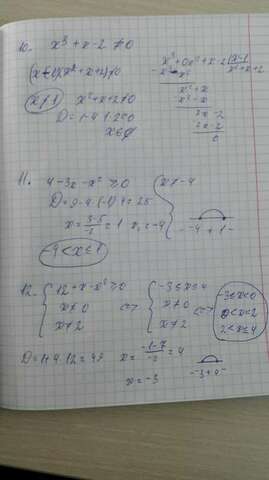 10. x³ + x - 2 ≠ 0
(x-1)(x²+x+2)≠0
x≠1 x²+x+2≠0
D=1-4·1·2<0
x∈∅
x³+0x²+x-2 | x-1
x³-x² x²+x+2
x²+x
x²-x
2x-2
2x-2
0
11. 4-3x-x² ≥0
x≠-4
D=9-4·(-1)·4=25
x=(3-5)/-2=1 x₂=-4
-4 1
-4<x≤1
12. 12+x-x²≥0
x≠0
x≠2
<=>
-3≤x≤4
x≠0
x≠2
<=>
-3≤x<0
0<x<2
2<x≤4
D=1+4·12=49 x=(-1-7)/-2=4
x=-3
-3 4